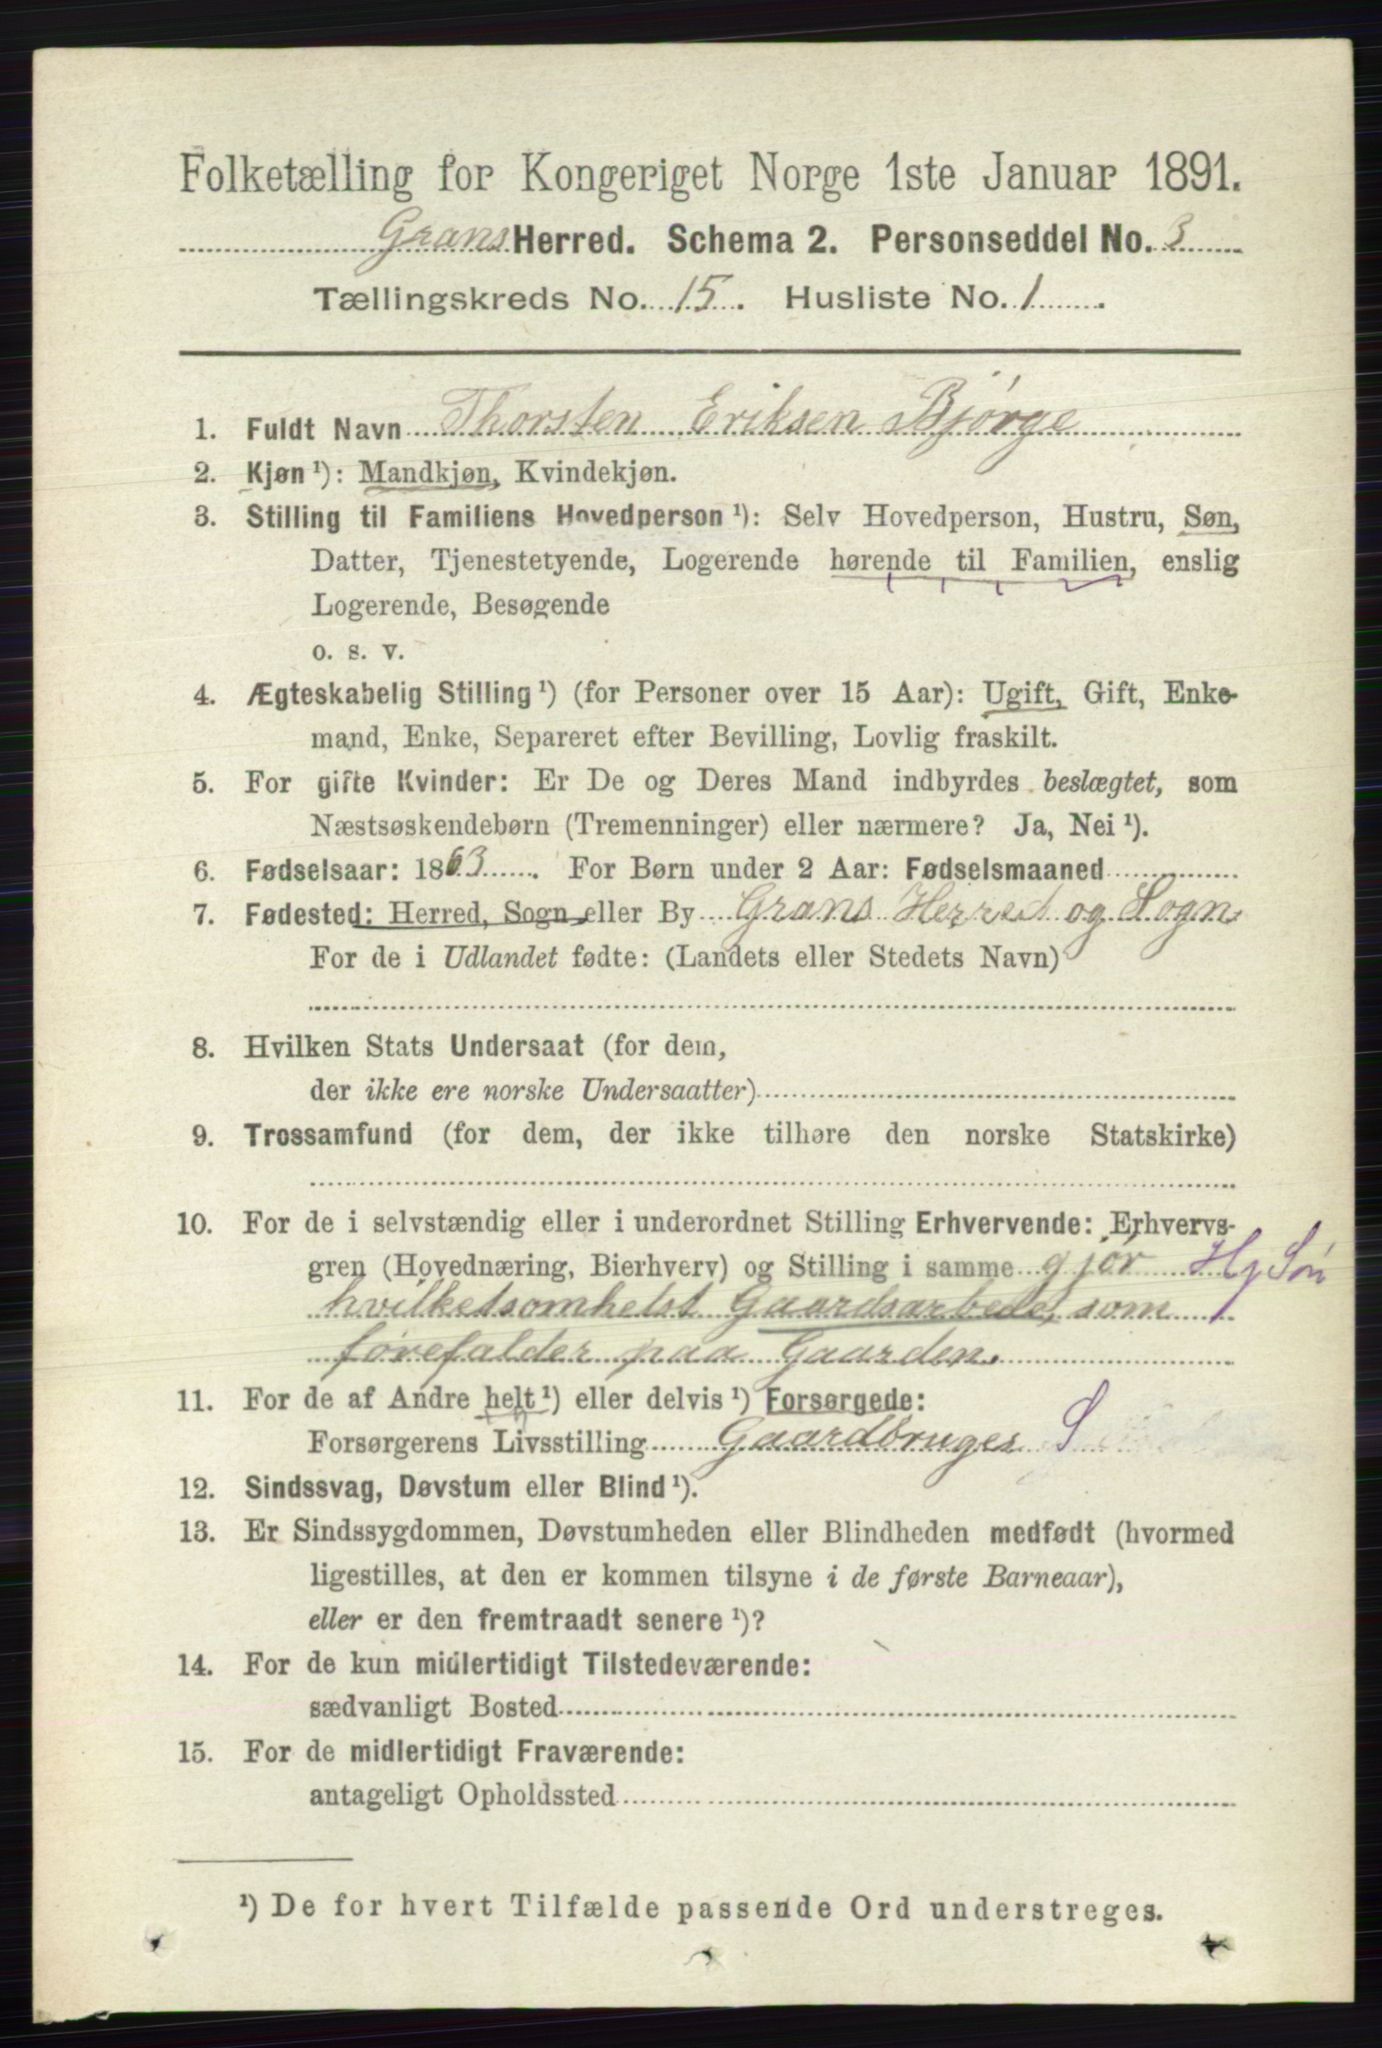 Folketælling for Kongeriget Norge 1ste Januar 1891.
Grans Herred. Schema 2. Personseddel No. 3
Tællingskreds No. 15. Husliste No. 1.
1. Fuldt Navn Thorsten Eriksen Bjørge
2. Kjøn¹): Mandkjøn, Kvindekjøn.
3. Stilling til Familiens Hovedperson¹): Selv Hovedperson, Hustru, Søn,
Datter, Tjenestetyende, Logerende hørende til Familien, enslig
Logerende, Besøgende
o. s. v.
4. Ægteskabelig Stilling¹) (for Personer over 15 Aar): Ugift, Gift, Enke-
mand, Enke, Separeret efter Bevilling, Lovlig fraskilt.
5. For gifte Kvinder: Er De og Deres Mand indbyrdes beslægtet, som
Næstsøskendebørn (Tremenninger) eller nærmere? Ja, Nei¹).
6. Fødselsaar: 1863. For Børn under 2 Aar: Fødselsmaaned
7. Fødested: Herred, Sogn eller By Grans Herred og Sogn.
For de i Udlandet fødte: (Landets eller Stedets Navn)
8. Hvilken Stats Undersaat (for dem,
der ikke ere norske Undersaatter)
9. Trossamfund (for dem, der ikke tilhøre den norske Statskirke)
10. For de i selvstændig eller i underordnet Stilling Erhvervende: Erhvervs-
gren (Hovednæring, Bierhverv) og Stilling i samme gjør Hj Søn
hvilketsomhelst Gaardsarbede, som
forefalder paa Gaarden.
11. For de af Andre helt¹) eller delvis¹) Forsørgede:
Forsørgerens Livsstilling Gaardbruger S
12. Sindssvag, Døvstum eller Blind¹).
13. Er Sindssygdommen, Døvstumheden eller Blindheden medfødt (hvormed
ligestilles, at den er kommen tilsyne i de første Barneaar),
eller er den fremtraadt senere¹)?
14. For de kun midlertidigt Tilstedeværende:
sædvanligt Bosted
15. For de midlertidigt Fraværende:
antageligt Opholdssted
¹) De for hvert Tilfælde passende Ord understreges.